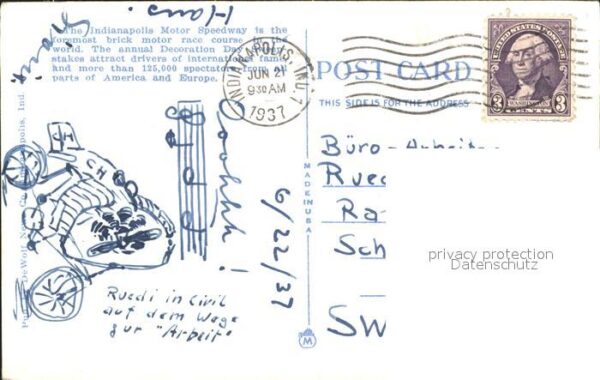 Hans.
The Indianapolis Motor Speedway is the
foremost brick motor race course in the
world. The annual Decoration Day
stakes attract drivers of international fame
and more than 125,000 spectators from all
parts of America and Europe.
INDIANAPOLIS, IND. 1
JUN 21
9 30 AM
1937
POST CARD
THIS SIDE IS FOR THE ADDRESS
UNITED STATES POSTAGE
WASHINGTON
3 3
CH
CH
6/22/37
MADE IN USA
M
Büro-Arbeit
Rue
Ra
Sch
SW
privacy protection
Datenschutz
Ruedi in Civil
auf dem Wege
zur "Arbeit"